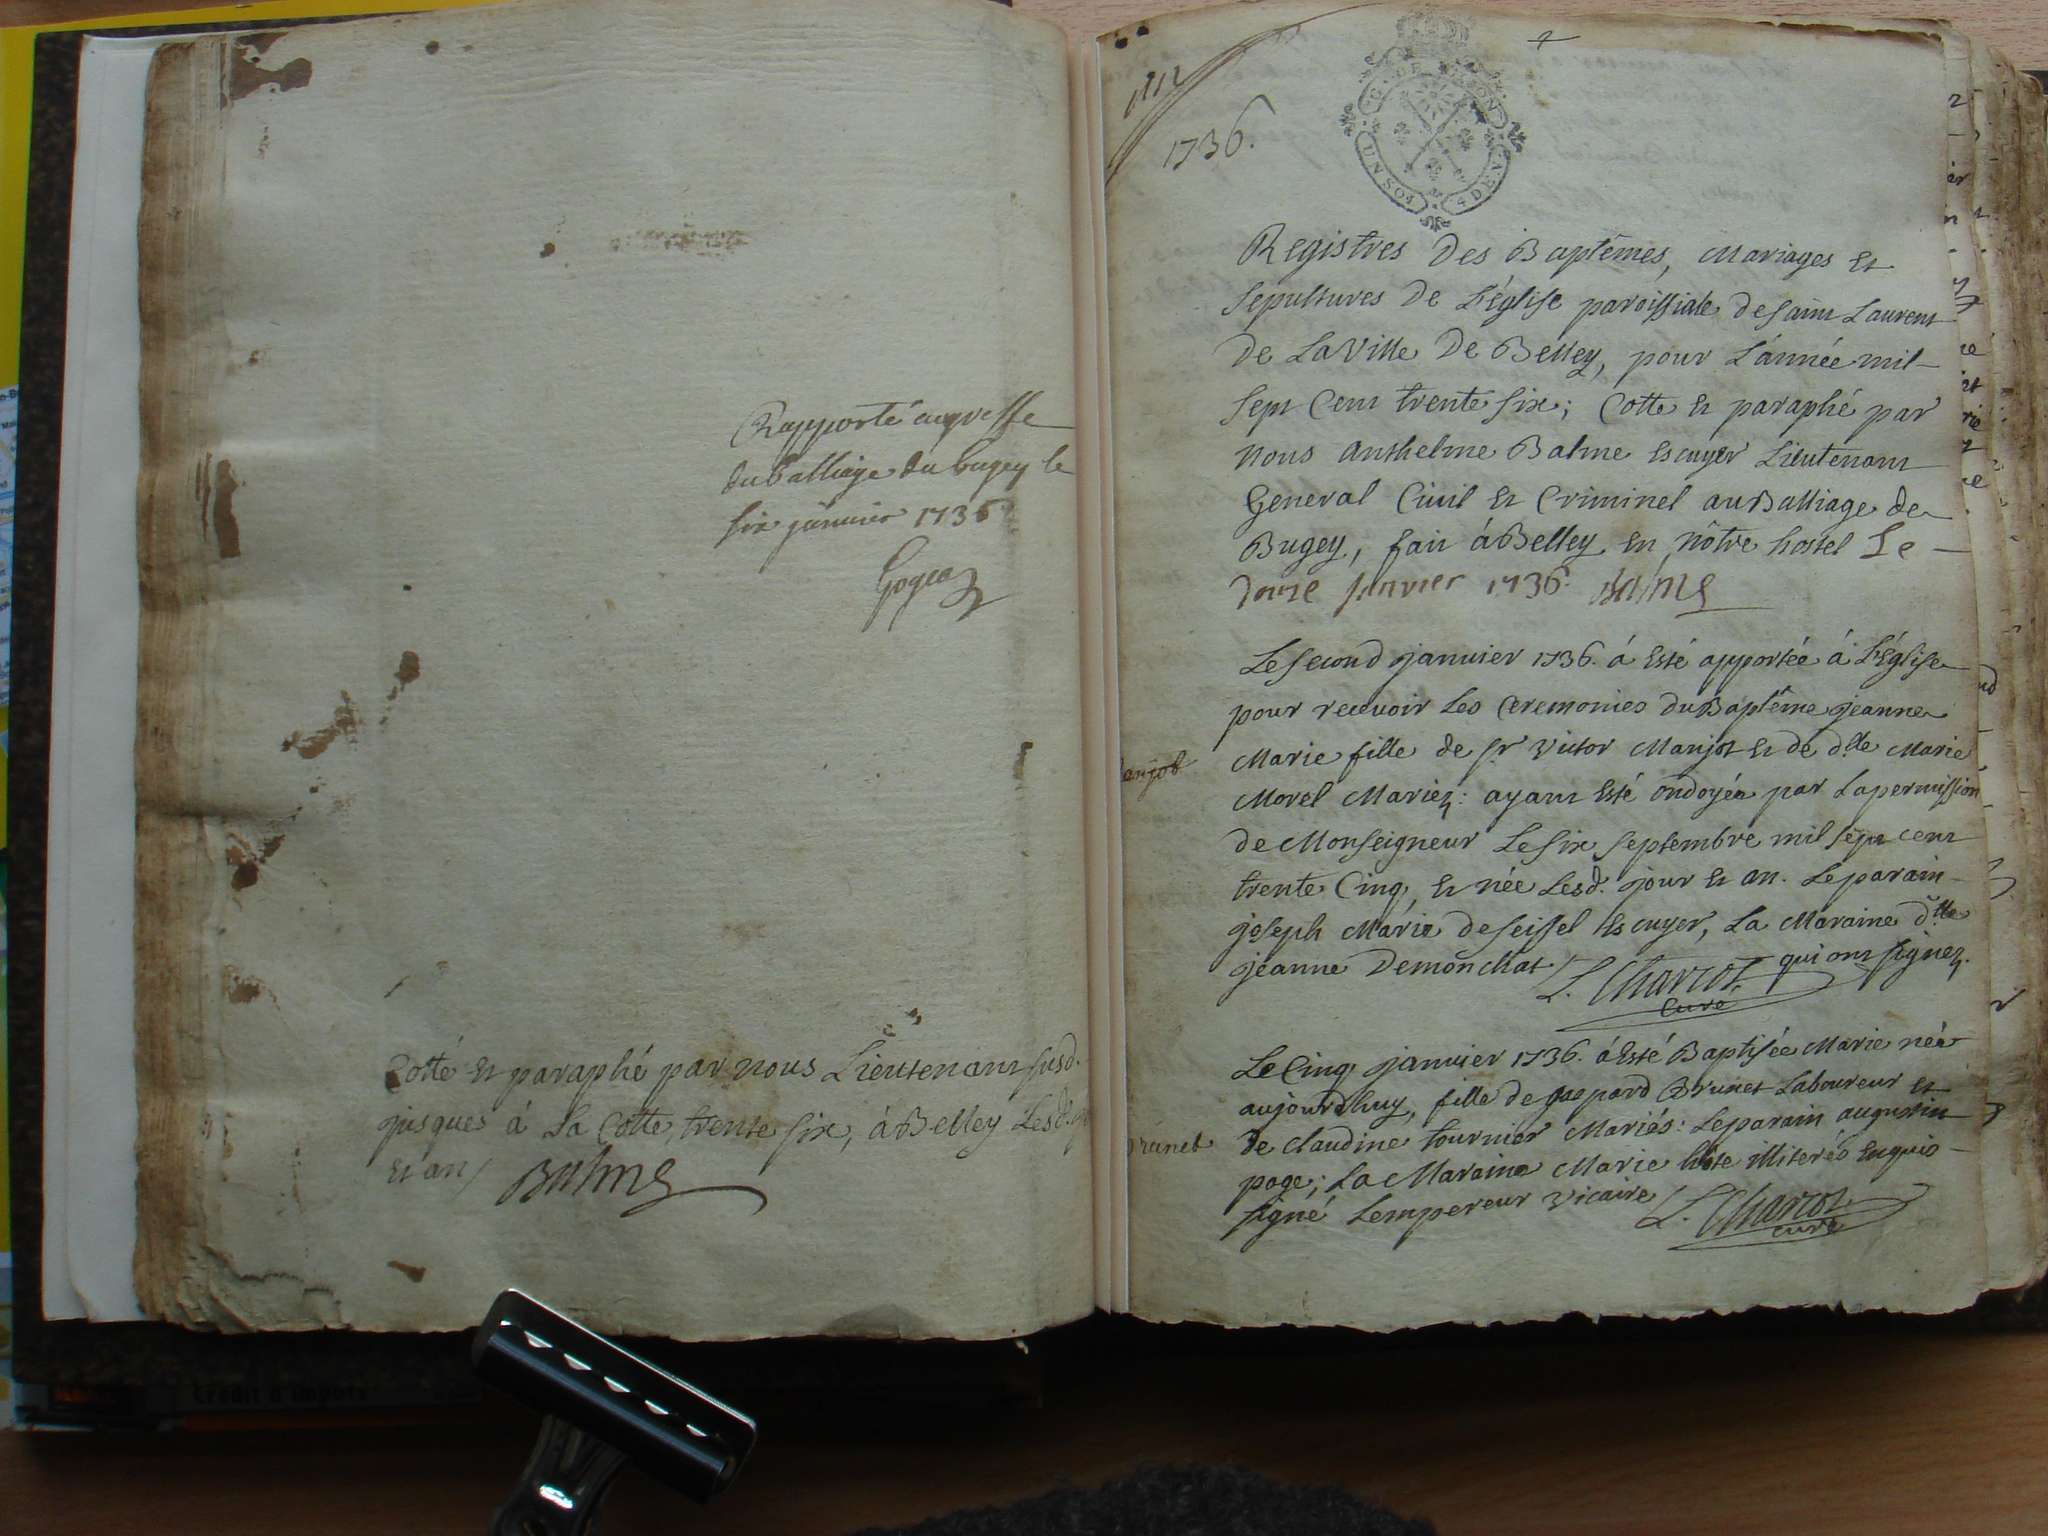 Rapporté au greffe
du balliage du bugey le
six janvier 1736
Cotté et paraphé par nous Lieutenant susd.
jusques à la Cotte trente six, à Belley Lesd.
et an
Balme
1736.
UN SOL
4 DEN.
Registres Des Baptêmes, Mariages et
sepultures De L'église paroissiale de saint Laurent
De La Ville De Belley, pour L'année mil
sept Cent trente six; Cotte et paraphé par
Nous Anthelme Balme Escuyer Lieutenant
General Civil et Criminel au Balliage de
Bugey, fait à Belley en nôtre hostel Le
douze janvier 1736. Balme
Le second janvier 1736. à esté apportée à L'Église
pour recevoir Les Ceremonies du Baptême jeanne
Marie fille de sr. Victor Manjot et de dlle Marie
Morel Mariez: ayant esté ondoyée par La permission
de Monseigneur Le six septembre mil sept cent
trente Cinq, et née Lesd. jour et an. Le parain
joseph Marie de seissel Escuyer, La Maraine dlle
jeanne Demonchat qui ont signez.
L. Charcot
Curé
anjot
Le Cinq janvier 1736. à esté Baptisée Marie née
aujourdhuy, fille de gaspard Brunet Laboureur et
de Claudine tournier Mariés: Le parain augustin
page; La Maraine Marie hôte illiterés Enquis
signé Lempereur Vicaire
L. Charcot
Curé
runet